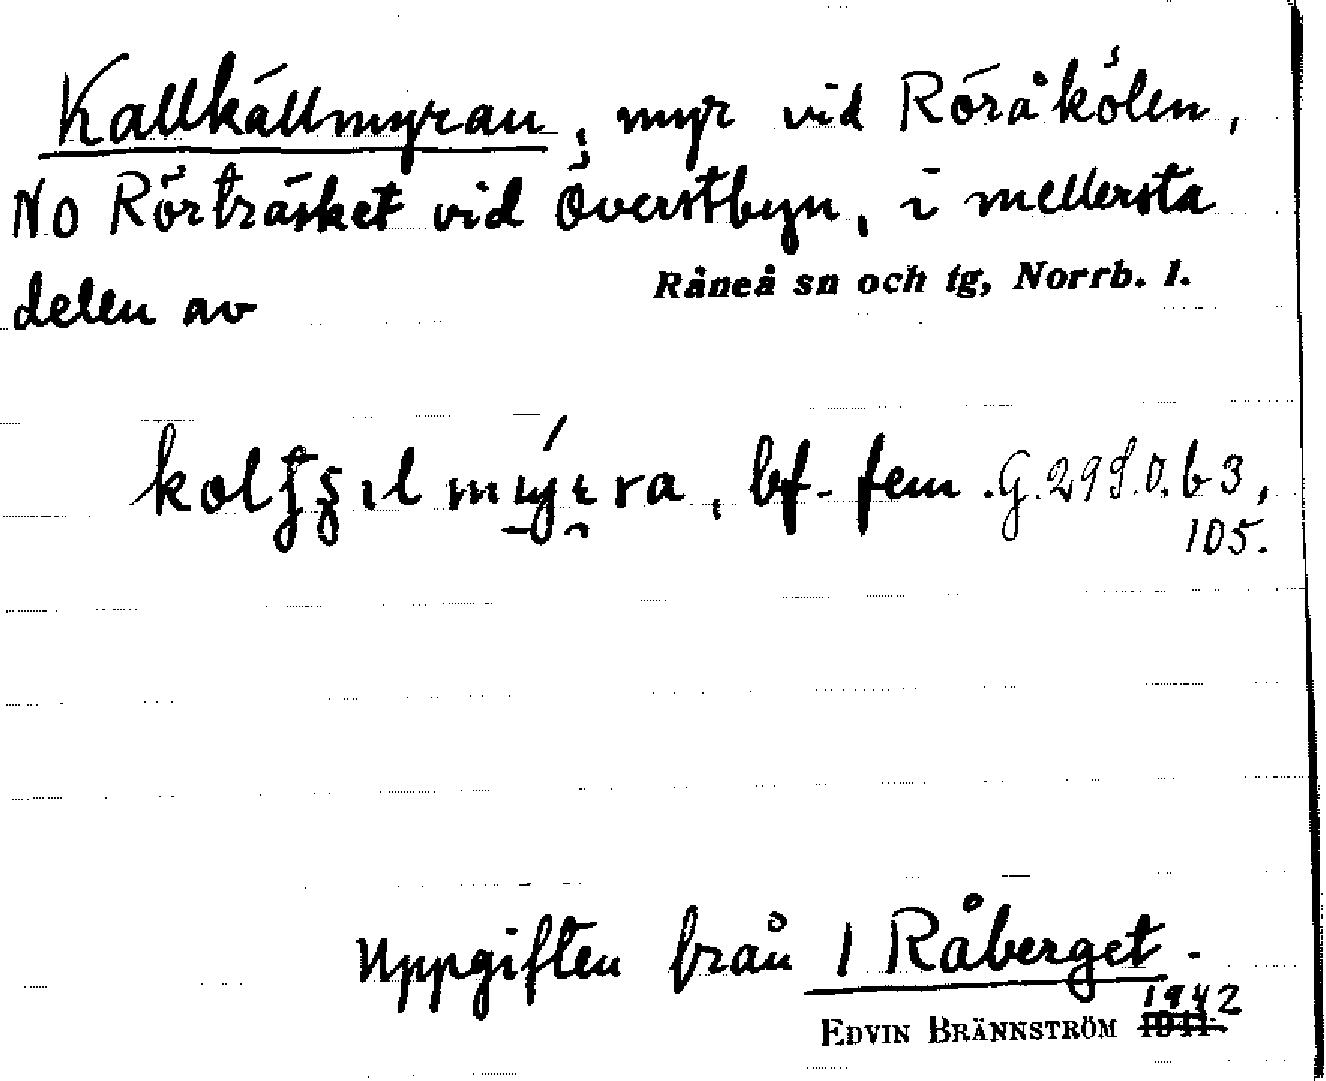 Kallkällmyran, myr vid Röråkölen,
NO Rörträsket vid Överstbyn, i mellersta
delen av Råneå sn och tg, Norrb. l.
bf. fem. G. 298.0. 63,
105.
Uppgiften från 1 Råberget.
1942
EDVIN BRÄNNSTRÖM 1941.